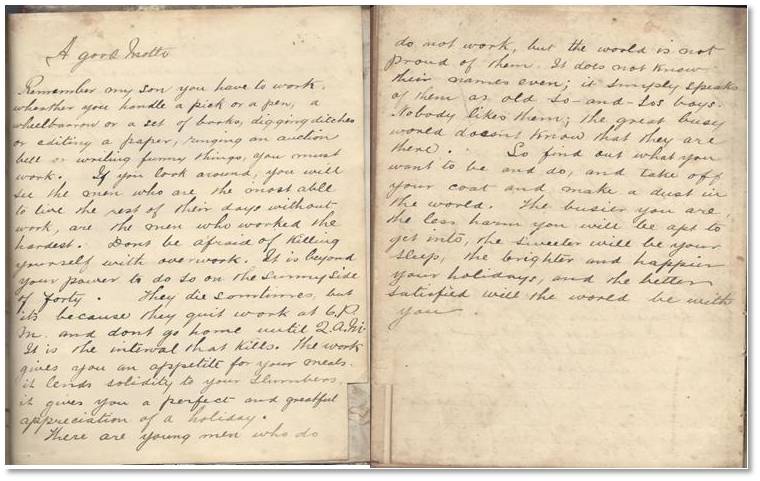 A good Motto
Remember my son you have to work.
whoather you handle a pick or a pen, a
wheelbarrow or a set of books, digging ditches
or editing a paper, ringing an auction
bell or writing funny things, you must
work. If you look around, you will
see the men who are the most able
to live the rest of their days without
work, are the men who worked the
hardest. Dont be afraid of killing
yourself with overwork. It is beyond
your power to do so on the sunny side
of forty. They die somtimes, but
its because they quit work at 6.P.
M. and dont go home until 2.A.M.
It is the interval that kills. The work
gives you an appetite for your meals.
it lends solidity to your slumbers.
it gives you a perfect and greatful
appreciation of a holiday.
There are young men who do
do not work, but the world is not
proud of them. It does not know
their names even; it simply speaks
of them as old So-and-Sos boys.
Nobody likes them; the great busy
world doesnt know that they are
there. So find out what you
want to be and do, and take off
your coat and make a dust in
the world. The busier you are,
the less harm you will be apt to
get into, the sweeter will be your
sleep, the brighter and happier
your holidays, and the better
satisfied will the world be with
you.